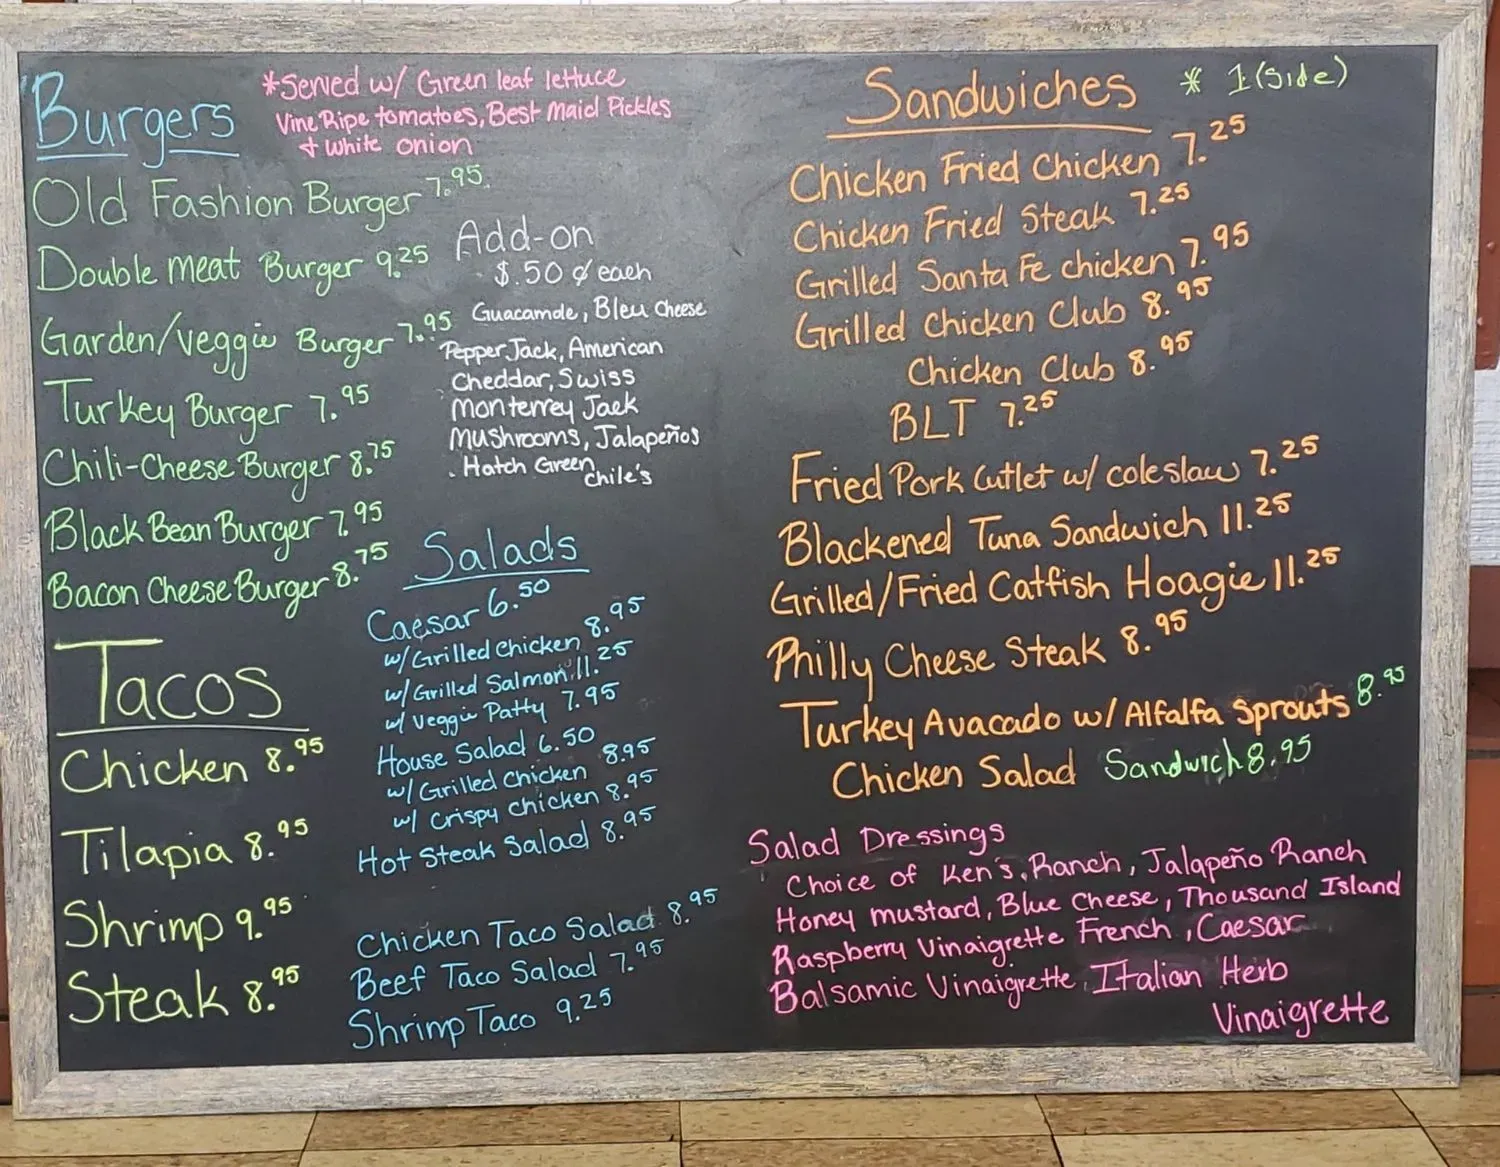 Burgers
*Served w/ Green leaf lettuce
Vine Ripe tomatoes, Best Maid Pickles
+ white onion
Old Fashion Burger 7.95
Double meat Burger 9.25
Garden/Veggie Burger 7.95
Turkey Burger 7.95
Chili-Cheese Burger 8.75
Black Bean Burger 7.95
Bacon Cheese Burger 8.75
Add-on
$.50 ¢ each
Guacamole, Bleu Cheese
Pepper Jack, American
Cheddar, Swiss
Monterrey Jack
Mushrooms, Jalapeños
Hatch Green
Chile's
Tacos
Chicken 8.95
Tilapia 8.95
Shrimp 9.95
Steak 8.95
Salads
Caesar 6.50
w/ Grilled Chicken 8.95
w/ Grilled Salmon 11.25
w/ Veggie Patty 7.95
House Salad 6.50
w/ Grilled Chicken 8.95
w/ Crispy Chicken 8.95
Hot Steak Salad 8.95
Chicken Taco Salad 8.95
Beef Taco Salad 7.95
Shrimp Taco 9.25
Sandwiches * 1 (side)
Chicken Fried Chicken 7.25
Chicken Fried Steak 7.25
Grilled Santa Fe Chicken 7.95
Grilled Chicken Club 8.95
Chicken Club 8.95
BLT 7.25
Fried Pork Cutlet w/ coleslaw 7.25
Blackened Tuna Sandwich 11.25
Grilled/Fried Catfish Hoagie 11.25
Philly Cheese Steak 8.95
Turkey Avacado w/ Alfalfa Sprouts 8.95
Chicken Salad Sandwich 8.95
Salad Dressings
Choice of Ken's, Ranch, Jalapeño Ranch
Honey mustard, Blue Cheese, Thousand Island
Raspberry Vinaigrette French, Caesar
Balsamic Vinaigrette, Italian Herb
Vinaigrette